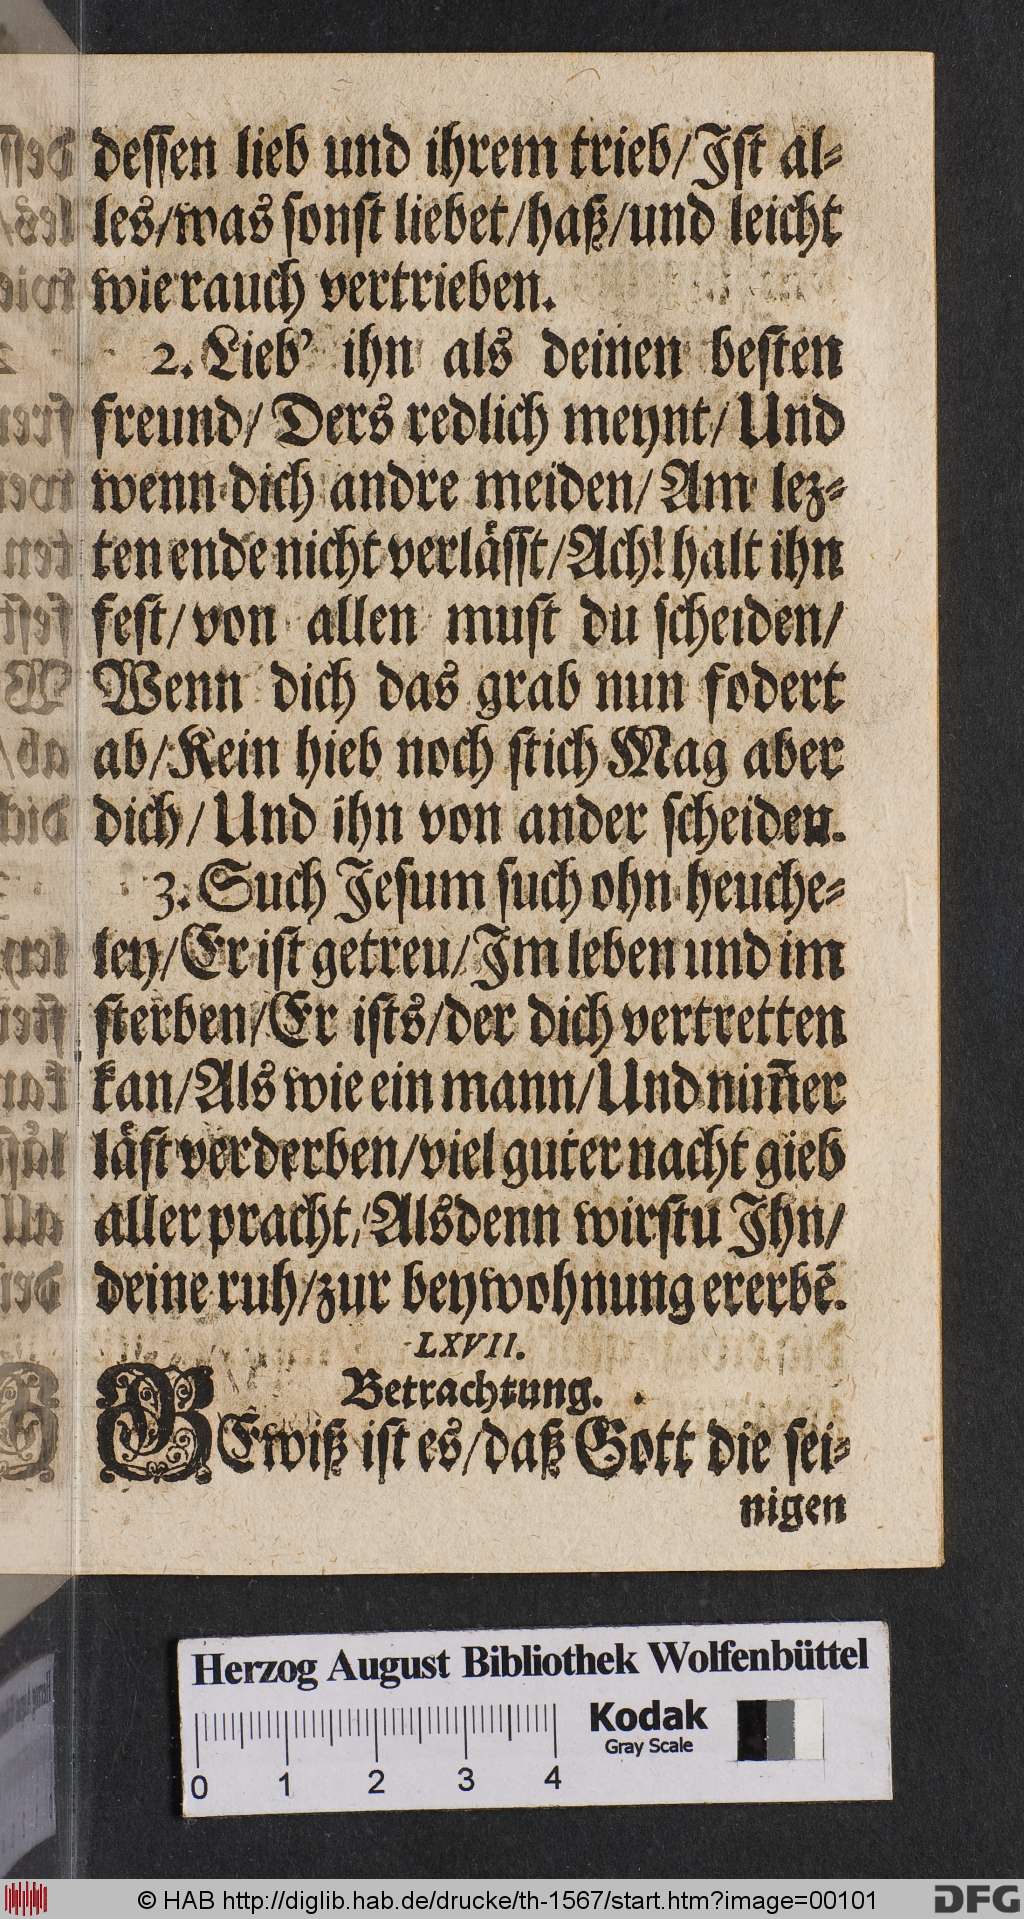 dessen lieb und ihrem trieb/Ist al-
les/was sonst liebet/haß/und leicht
wie rauch vertrieben.
2. Lieb' ihn als deinen besten
freund/ Ders redlich meynt/ Und
wenn dich andre meiden/ Am lez-
ten ende nicht verlässt/Ach! halt ihn
fest/ von allen must du scheiden/
Wenn dich das grab nun fodert
ab/Kein hieb noch stich Mag aber
dich/ Und ihn von ander scheiden.
3. Such Jesum such ohn heuche-
ley/Er ist getreu/Im leben und im
sterben/Er ists/der dich vertretten
kan/Als wie ein mann/Und nim̄er
läst verderben/viel guter nacht gieb
aller pracht/Alsdenn wirstu Ihn/
deine ruh/zur beywohnung ererbē.
LXVII.
Betrachtung.
GEwiß ist es/daß Gott die sei-
nigen
Herzog August Bibliothek Wolfenbüttel
Kodak
Gray Scale
0 1 2 3 4
© HAB http://diglib.hab.de/drucke/th-1567/start.htm?image=00101
DFG